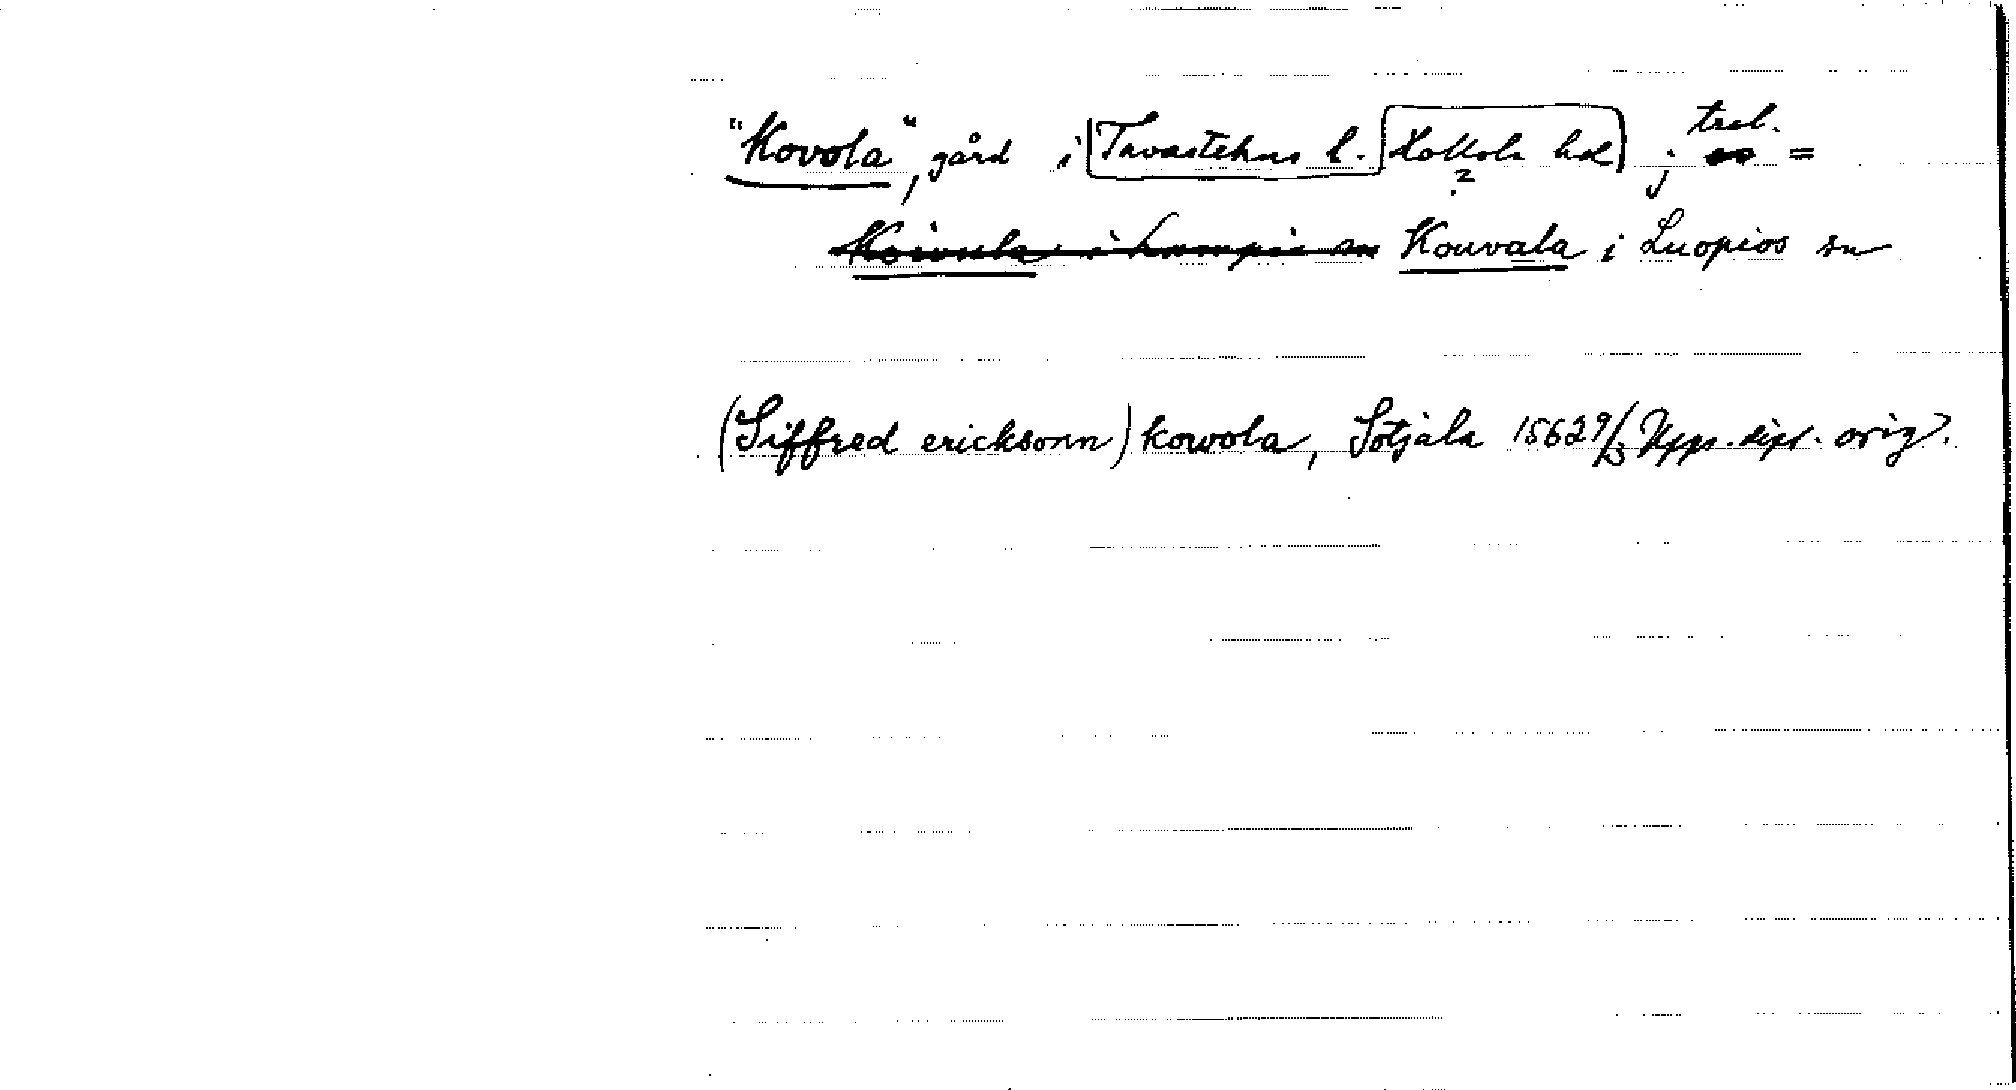 "Kovola", gård i Tavastehus l. Hollola hd; trol. =
Koivula i Lampis sn Kouvala i Luopios sn
(Siffred ericksonn) kowola, Sotjala 1562 9/3 Upps. dipl. orig.